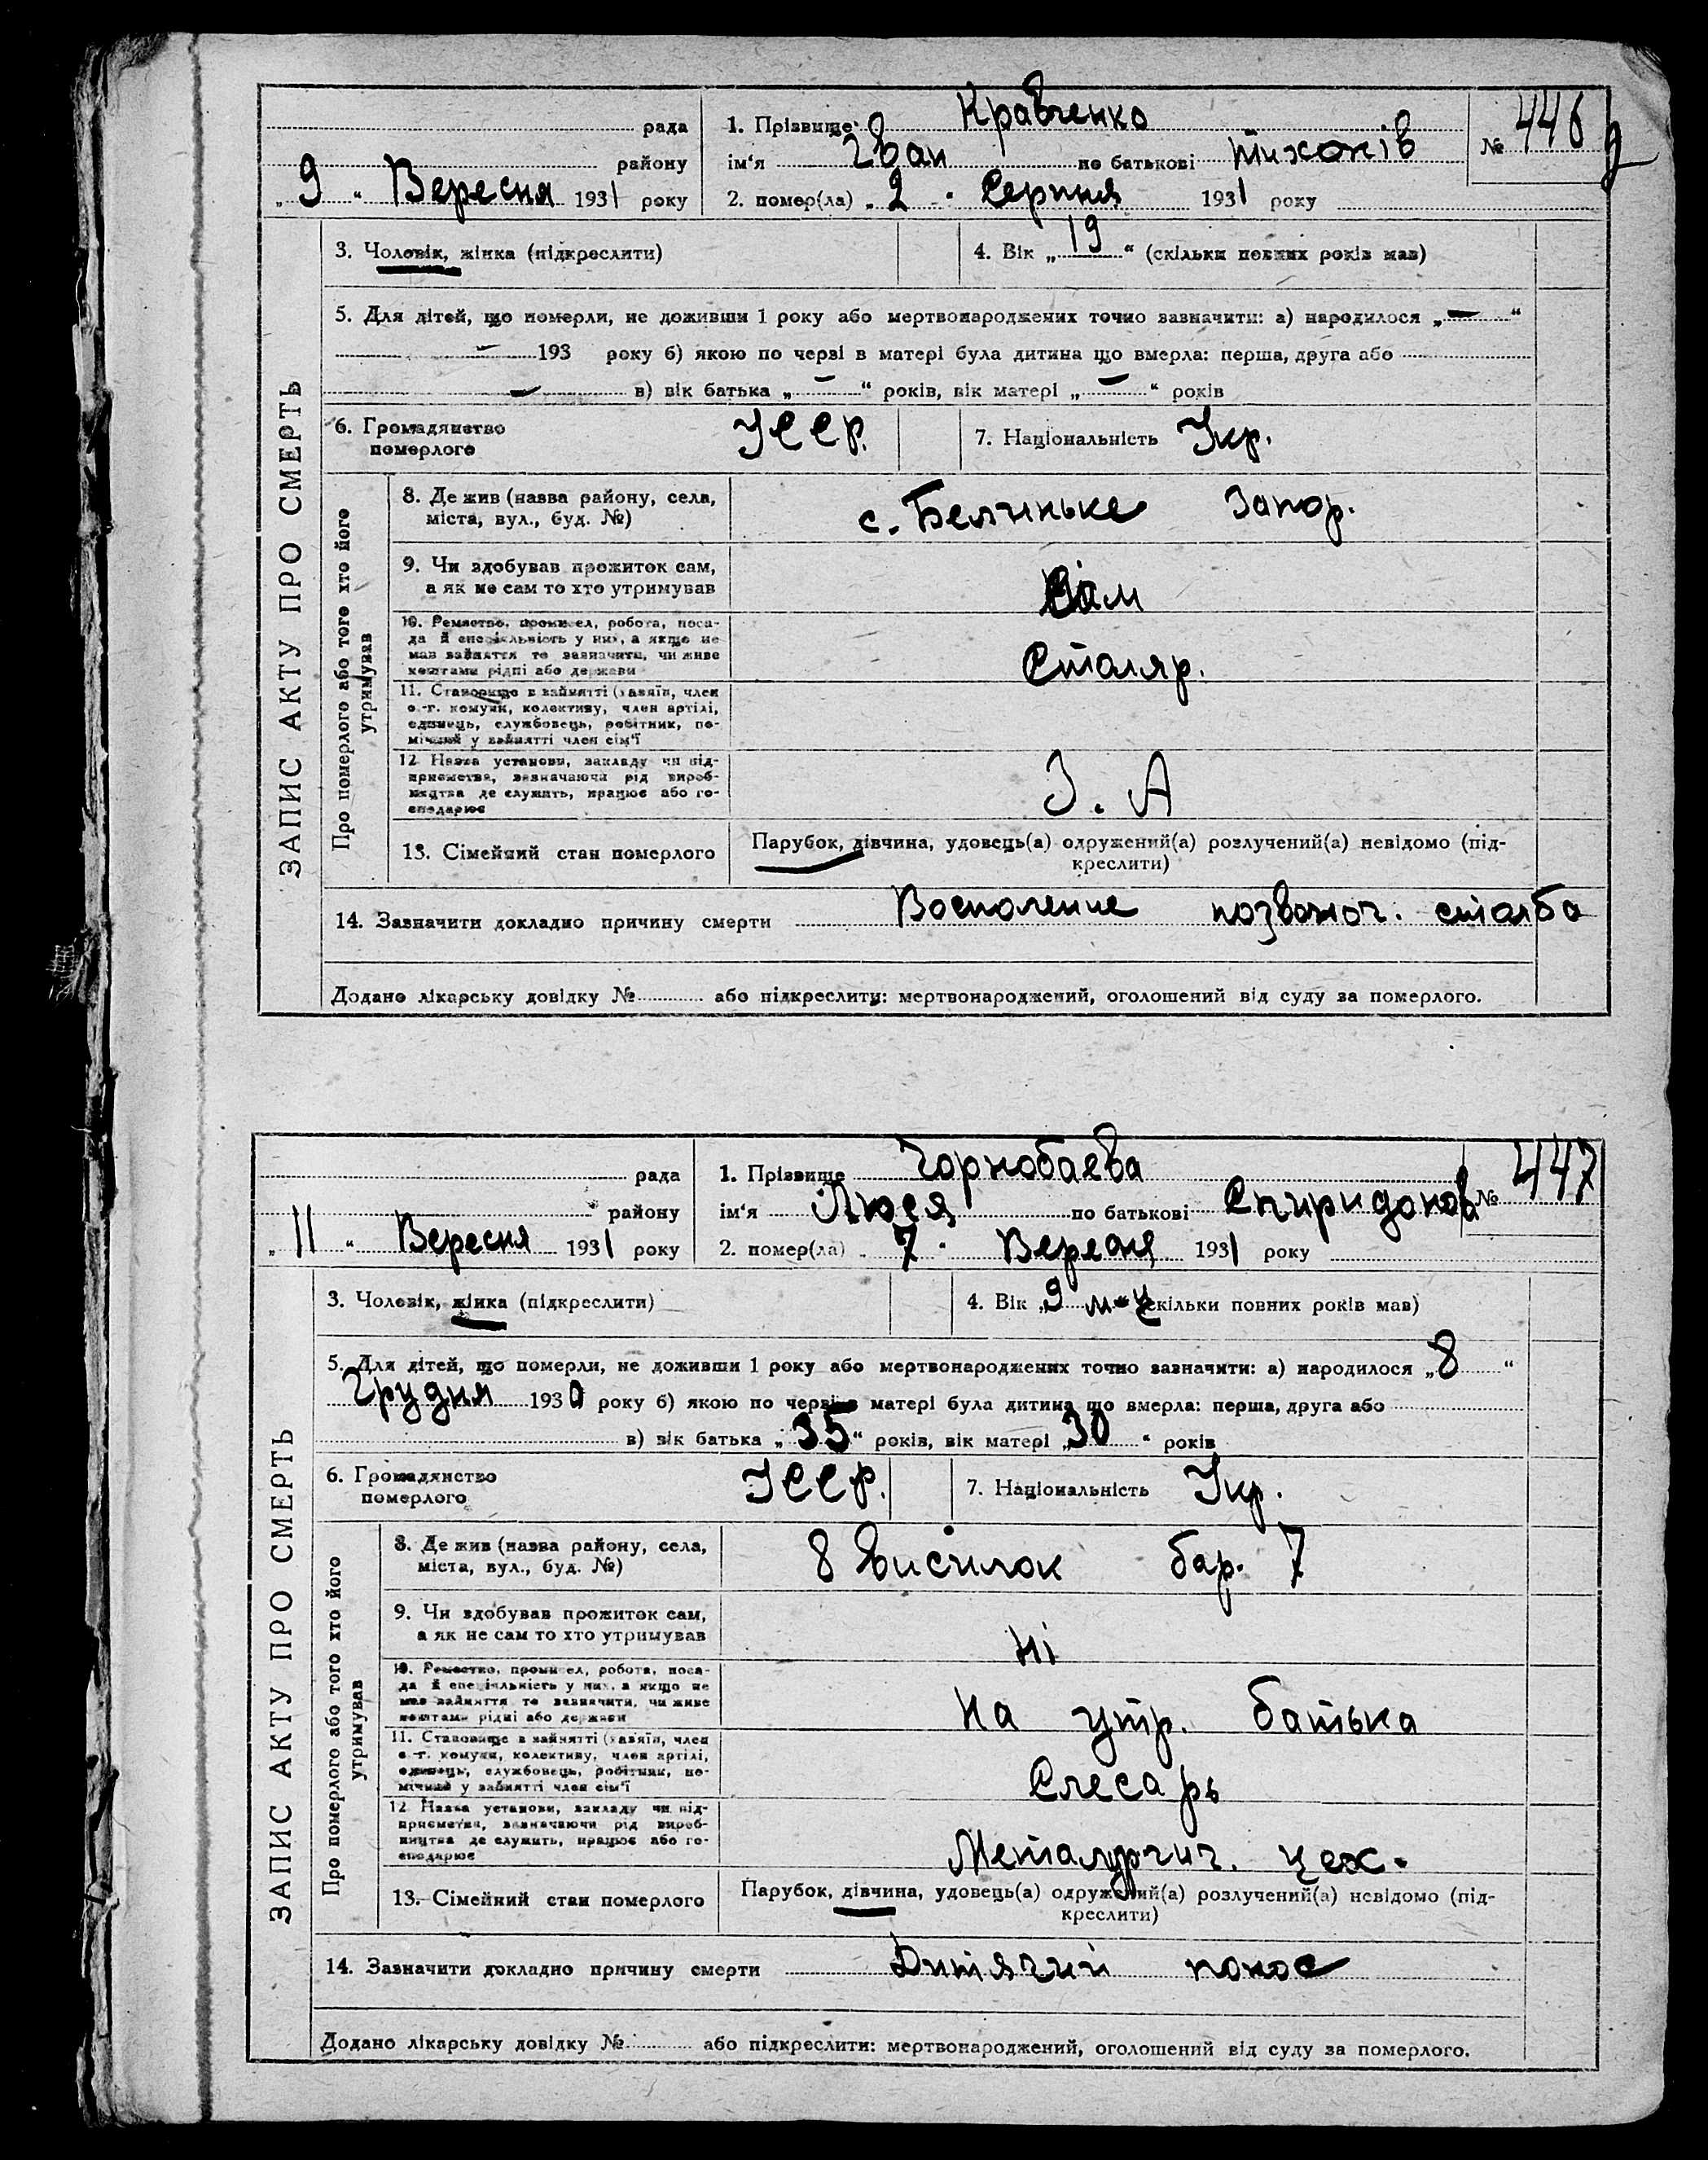 рада 1. Прізвище Кравченко № 446
району ім'я Іван по батькові Тихонів
„ 9 “ Вересня 1931 року 2. помер(ла) „ 2 “ Серпня 1931 року
ЗАПИС АКТУ ПРО СМЕРТЬ
3. Чоловік, жінка (підкреслити) 4. Вік „ 19 “ (скільки повних років мав)
5. Для дітей, що померли, не доживши 1 року або мертвонароджених точно зазначити: а) народилося „ — “
— 193 року б) якою по черзі в матері була дитина що вмерла: перша, друга або
— в) вік батька „ — “ років, вік матері „ — “ років
6. Громадянство УССР. 7. Національність Укр.
померлого
Про померлого або того хто його
утримував
8. Де жив (назва району, села, с. Белиньке Запор.
міста, вул., буд. №)
9. Чи здобував прожиток сам, Сам
а як не сам то хто утримував
10. Ремество, промисел, робота, поса-
да й спеціяльність у них, а якщо не
мав зайняття то зазначити, чи живе Столяр.
коштами рідні або держави
11. Становище в зайнятті (хазяїн, член
с.-г. комуни, колективу, член артілі,
одинець, службовець, робітник, по-
мічний у зайнятті член сім'ї
12 Назва установи, закладу чи під-
приємства, зазначаючи рід вироб- З. А
ництва де служить, працює або го-
сподарює
13. Сімейний стан померлого Парубок, дівчина, удовець(а) одружений(а) розлучений(а) невідомо (під-
креслити)
14. Зазначити докладно причину смерти Восполение позвоноч. столба
Додано лікарську довідку № або підкреслити: мертвонароджений, оголошений від суду за померлого.
рада 1. Прізвище Чорнобаева № 447
району ім'я Люся по батькові Спиридонов
„ 11 “ Вересня 1931 року 2. помер(ла) „ 7 “ Вересня 1931 року
ЗАПИС АКТУ ПРО СМЕРТЬ
3. Чоловік, жінка (підкреслити) 4. Вік „ 9 м-ц скільки повних років мав)
5. Для дітей, що померли, не доживши 1 року або мертвонароджених точно зазначити: а) народилося „ 8 “
Грудня 1930 року б) якою по черзі в матері була дитина що вмерла: перша, друга або
в) вік батька „ 35 “ років, вік матері „ 30 “ років
6. Громадянство УССР. 7. Національність Укр.
померлого
Про померлого або того хто його
утримував
8. Де жив (назва району, села, 8 Висилок бар. 7
міста, вул., буд. №)
9. Чи здобував прожиток сам,
а як не сам то хто утримував Ні
10. Ремество, промисел, робота, поса-
да й спеціяльність у них, а якщо не
мав зайняття то зазначити, чи живе На утр. батька
коштами рідні або держави
11. Становище в зайнятті (хазяїн, член
с.-г. комуни, колективу, член артілі,
одинець, службовець, робітник, по- Слесарь
мічний у зайнятті член сім'ї
12 Назва установи, закладу чи під-
приємства, зазначаючи рід вироб-
ництва де служить, працює або го- Металургич. цех.
сподарює
13. Сімейний стан померлого Парубок, дівчина, удовець(а) одружений(а) розлучений(а) невідомо (під-
креслити)
14. Зазначити докладно причину смерти Дитячий понос
Додано лікарську довідку № або підкреслити: мертвонароджений, оголошений від суду за померлого.